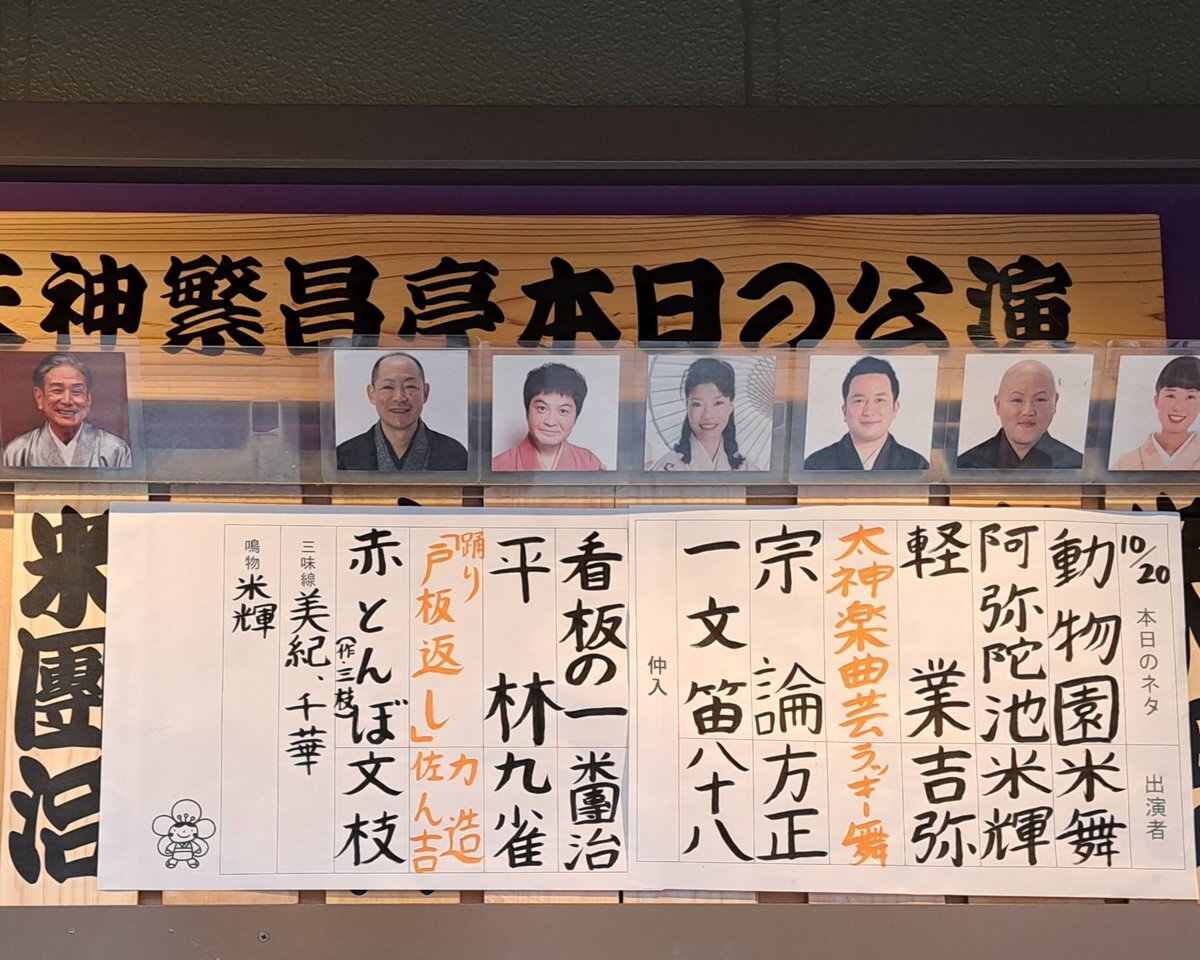 天神繁昌亭本日の公演
10/20
本日のネタ 出演者
動物園 米舞
阿弥陀池 米輝
軽業 吉弥
太神楽曲芸 ラッキー舞
宗論 方正
一文笛 八十八
仲入
看板の一 米團治
平林 九雀
踊り「戸板返し」 力造 佐ん吉
赤とんぼ(作・三枝) 文枝
三味線 美紀、千華
鳴物 米輝
米團治